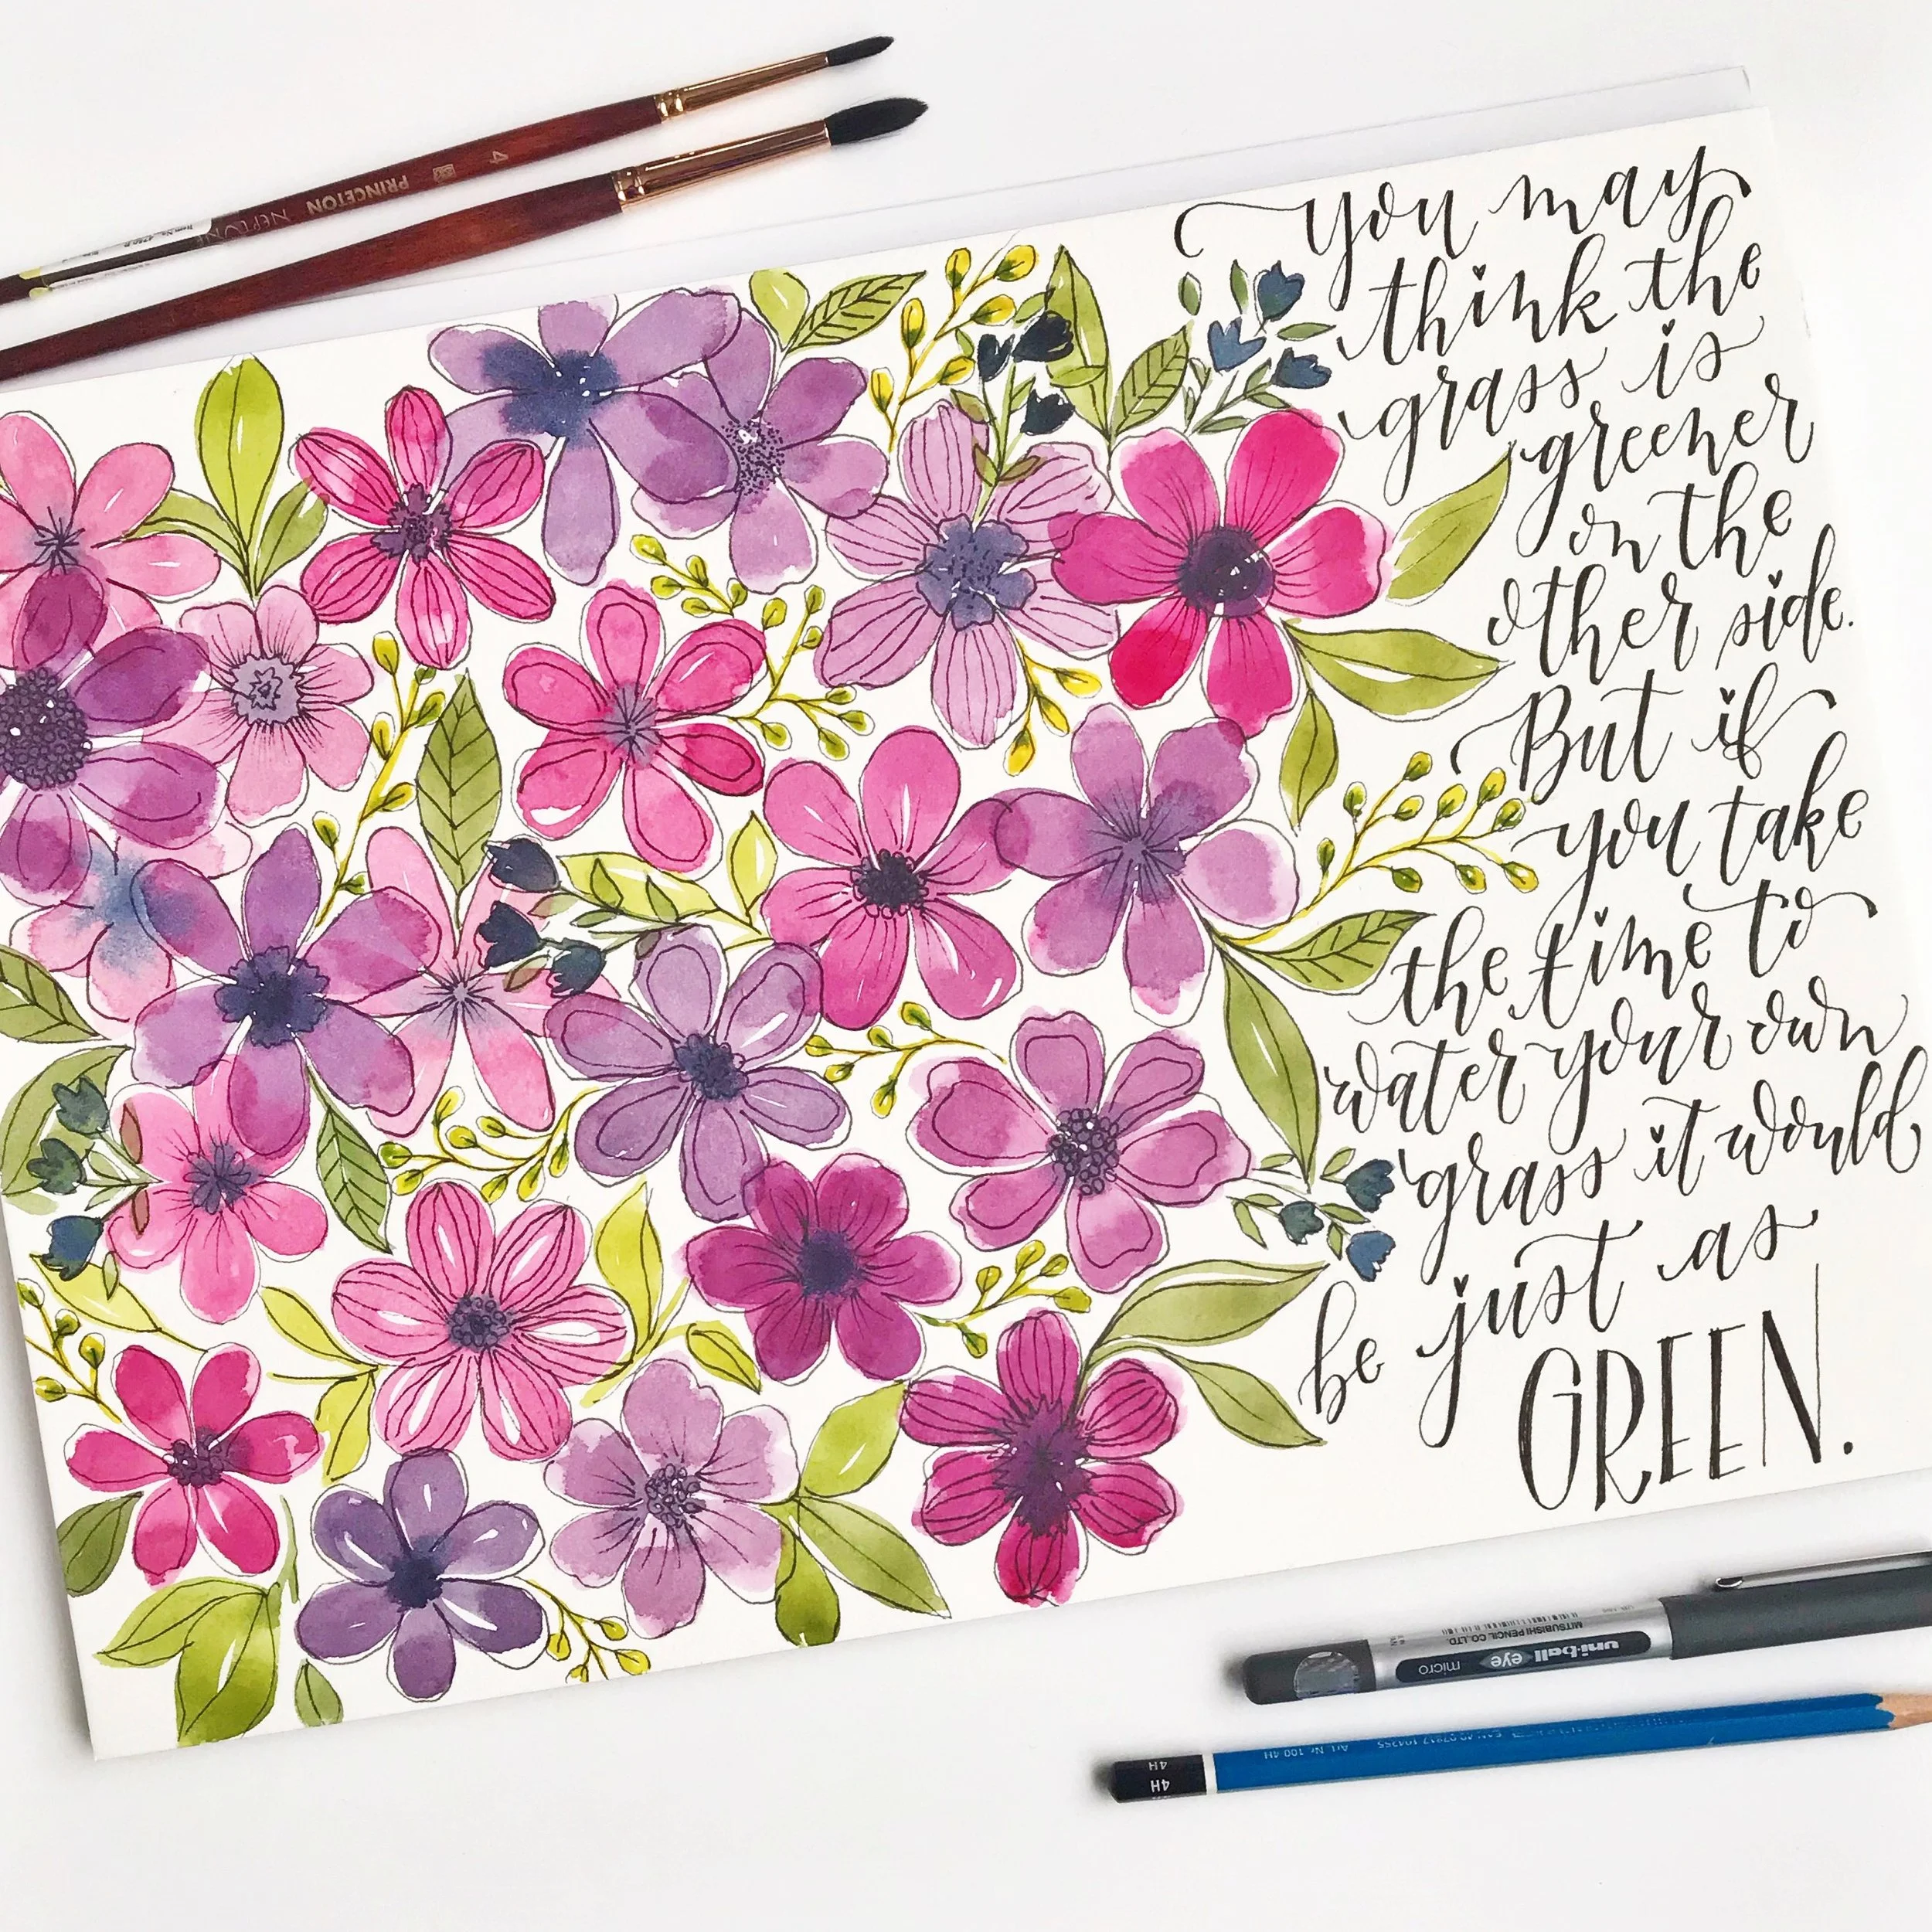 4
PRINCETON
NEPTUNE
you may
think the
grass is
greener
on the
other side.
But if
you take
the time to
water your own
grass it would
be just as
GREEN.
uni-ball eye
micro
MITSUBISHI PENCIL CO. LTD.
4H
4H
Art. Nr. 100 4H